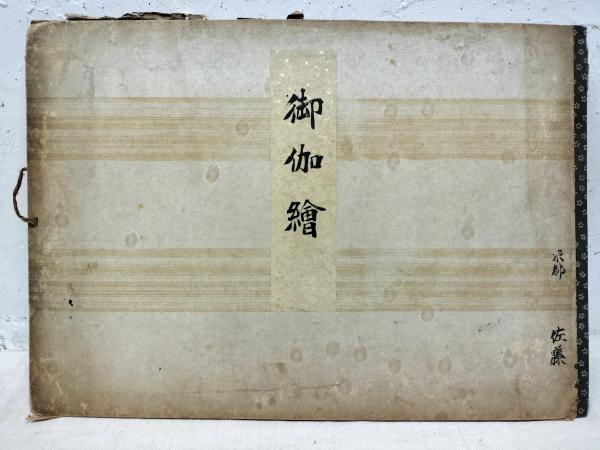 御伽繪
京都
佐藤